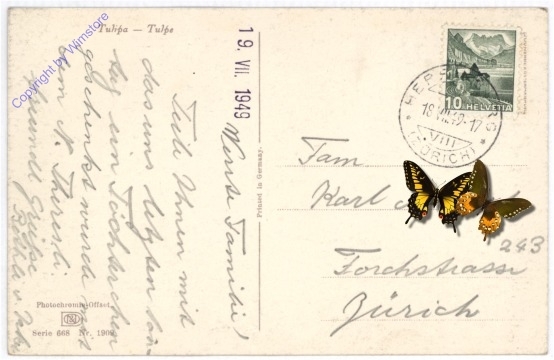 Tulipa — Tulpe
Copyright by Wimstore
19. VII. 1949
Werte Familie!
Teile Ihnen mit
das uns letzten Son-
tag ein Töchterchen
geschenkt wurde mit
dem N. Theresli.
Freundl Grüsse
Photochromie-Offset.
Serie 668 Nr. 1909
Printed in Germany.
10 HELVETIA
18.VII.49-17
VIII
(ZÜRICH)
Fam
Karl
243
Forchstrasse
Zürich